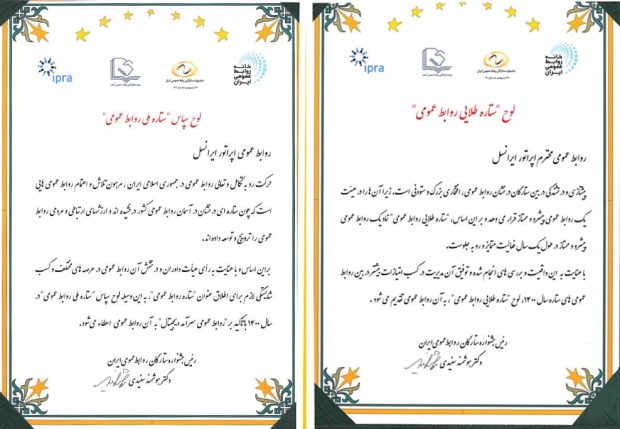 خانه
روابط
عمومی
ایران
ipra
لوح "ستاره طلایی روابط عمومی"
روابط عمومی محترم اپراتور ایرانسل
پیشتازی و درخشندگی در بین ستارگان درخشان روابط عمومی، افتخاری بزرگ و ستودنی است. زیرا آن ها را در هیئت
یک روابط عمومی پیشرو و ممتاز قرار می دهد و بر این اساس، "ستاره طلایی روابط عمومی" نماد یک روابط عمومی
پیشرو و ممتاز در طول یک سال فعالیت متمایز و رو به جلوست.
با عنایت به این واقعیت و بررسی های انجام شده و توفیق آن مدیریت در کسب امتیازات بیشتر در بین روابط
عمومی های ستاره سال ۱۴۰۰، لوح "ستاره طلایی روابط عمومی"، به آن روابط عمومی تقدیم می شود.
رئیس جشنواره ستارگان روابط عمومی ایران
دکتر هوشمند سفیدی
خانه
روابط
عمومی
ایران
ipra
لوح سپاس "ستاره ملی روابط عمومی"
روابط عمومی اپراتور ایرانسل
حرکت رو به تکامل و تعالی روابط عمومی در جمهوری اسلامی ایران، مرهون تلاش و اهتمام روابط عمومی هایی
است که چون ستاره ای درخشان در آسمان روابط عمومی کشور درخشیده اند و ارزشهای ارتباطی و مردمی روابط
عمومی را ترویج و توسعه داده اند.
بر این اساس و با عنایت به رأی هیأت داوران و درخشش آن روابط عمومی در عرصه های مختلف و کسب
شایستگی لازم برای اطلاق عنوان "ستاره روابط عمومی"، به این وسیله لوح سپاس "ستاره ملی روابط عمومی" در
سال ۱۴۰۰ با تأکید بر "روابط عمومی سرآمد دیجیتال" به آن روابط عمومی اعطاء می شود.
رئیس جشنواره ستارگان روابط عمومی ایران
دکتر هوشمند سفیدی